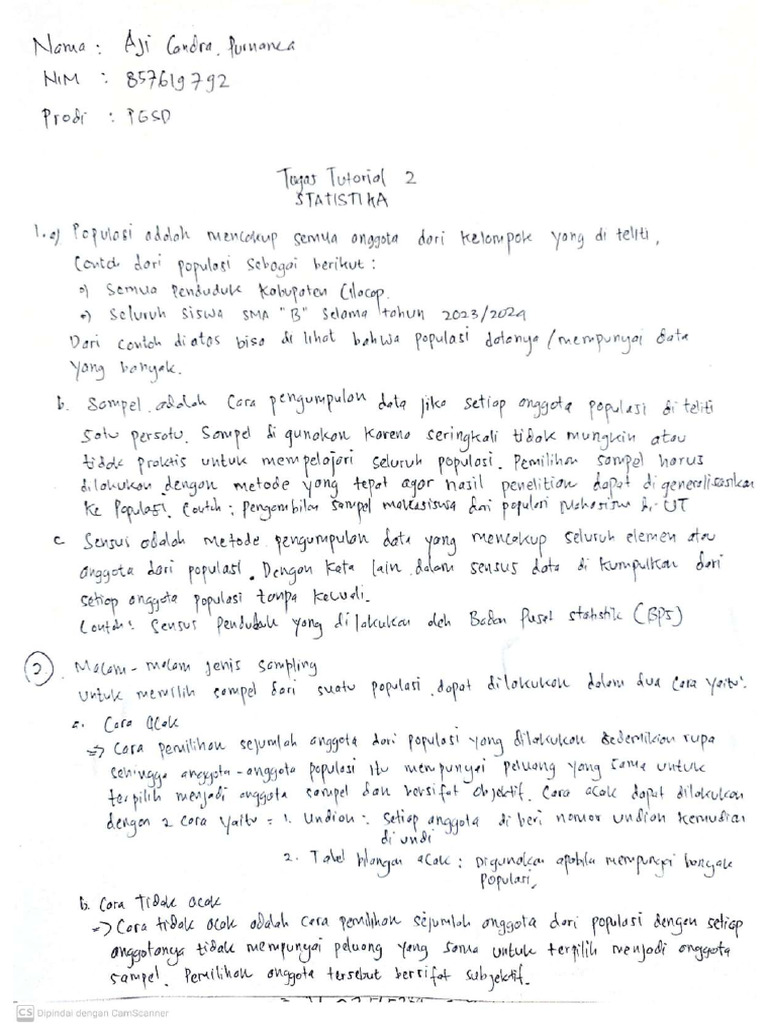 Nama : Aji Candra Purnanca
NIM : 857619792
Prodi : PGSD
Tugas Tutorial 2
STATISTIKA
1. a) Populasi adalah mencakup semua anggota dari kelompok yang di teliti,
Contoh dari populasi sebagai berikut :
•) Semua Penduduk Kabupaten Cilacap.
•) Seluruh siswa SMA "B" Selama tahun 2023/2024
Dari contoh diatas bisa di lihat bahwa populasi datanya / mempunyai data
yang banyak.
b. Sampel adalah cara pengumpulan data jika setiap anggota populasi di teliti
satu persatu. Sampel di gunakan karena seringkali tidak mungkin atau
tidak praktis untuk mempelajari seluruh populasi. Pemilihan sampel harus
dilakukan dengan metode yang tepat agar hasil penelitian dapat di generalisasikan
ke populasi. Contoh : Pengambilan sampel mahasiswa dari populasi Mahasiswa di UT
c. Sensus adalah metode pengumpulan data yang mencakup seluruh elemen atau
anggota dari populasi. Dengan kata lain dalam sensus data di kumpulkan dari
setiap anggota populasi tanpa kecuali.
Contoh : Sensus Penduduk yang dilakukan oleh Badan Pusat statistik (BPS)
2. Macam - macam jenis sampling
untuk memilih sampel dari suatu populasi dapat dilakukan dalam dua cara yaitu :
a. Cara acak
=> Cara pemilihan sejumlah anggota dari populasi yang dilakukan sedemikian rupa
sehingga anggota - anggota populasi itu mempunyai peluang yang sama untuk
terpilih menjadi anggota sampel dan bersifat objektif. Cara acak dapat dilakukan
dengan 2 cara yaitu = 1. Undian : Setiap anggota di beri nomor undian kemudian
di undi
2. Tabel bilangan acak : Digunakan apabila mempunyai banyak
populasi.
b. Cara tidak acak
=> Cara tidak acak adalah cara pemilihan sejumlah anggota dari populasi dengan setiap
anggotanya tidak mempunyai peluang yang sama untuk terpilih menjadi anggota
sampel. Pemilihan anggota tersebut bersifat subjektif.
CS Dipindai dengan CamScanner